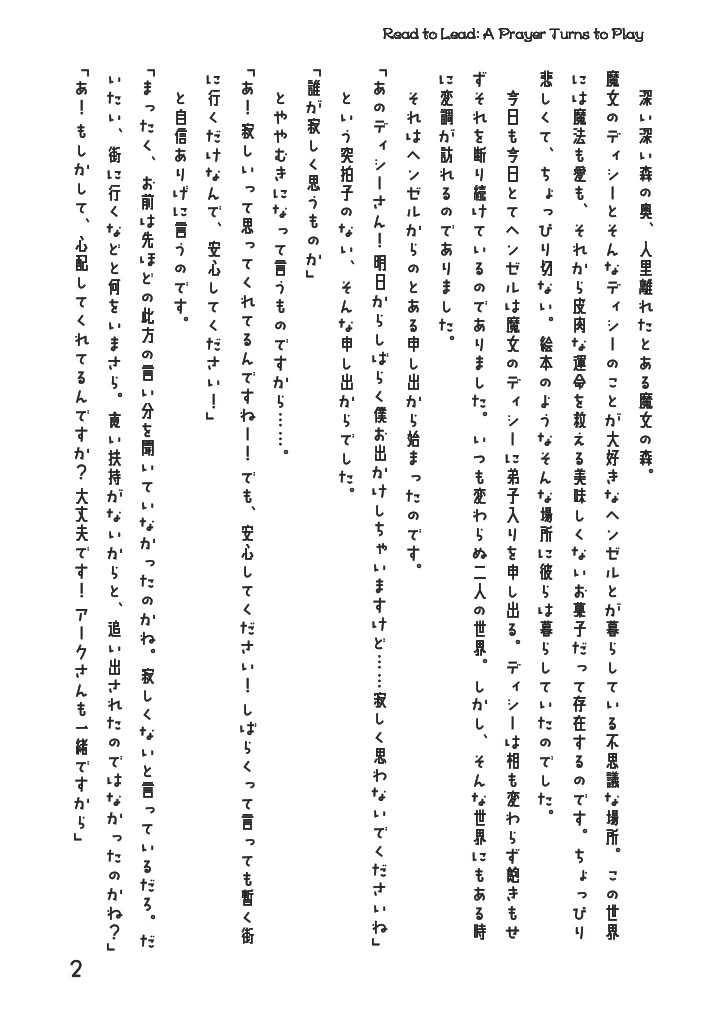 Read to Lead: A Prayer Turns to Play
深い深い森の奥、人里離れたとある魔女の森。
魔女のディシーとそんなディシーのことが大好きなヘンゼルとが暮らしている不思議な場所。この世界
には魔法も愛も、それから皮肉な運命を救える美味しくないお菓子だって存在するのです。ちょっぴり
悲しくて、ちょっぴり切ない。絵本のようなそんな場所に彼らは暮らしていたのでした。
今日も今日とてヘンゼルは魔女のディシーに弟子入りを申し出る。ディシーは相も変わらず飽きもせ
ずそれを断り続けているのでありました。いつも変わらぬ二人の世界。しかし、そんな世界にもある時
に変調が訪れるのでありました。
それはヘンゼルからのとある申し出から始まったのです。
「あのディシーさん！明日からしばらく僕お出かけしちゃいますけど……寂しく思わないでくださいね」
という突拍子のない、そんな申し出からでした。
「誰が寂しく思うものか」
とややむきになって言うものですから……。
「あ！寂しいって思ってくれてるんですねー！でも、安心してください！しばらくって言っても暫く街
に行くだけなんで、安心してください！」
と自信ありげに言うのです。
「まったく、お前は先ほどの此方の言い分を聞いていなかったのかね。寂しくないと言っているだろ。だ
いたい、街に行くなどと何をいまさら。喰い扶持がないからと、追い出されたのではなかったのかね？」
「あ！もしかして、心配してくれてるんですか？大丈夫です！アークさんも一緒ですから」
2